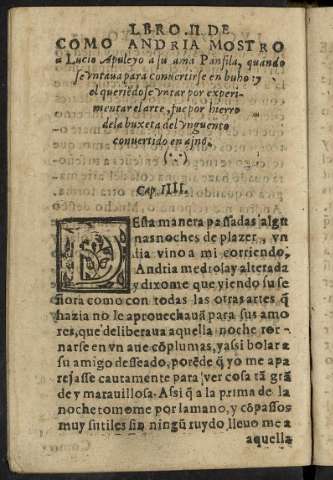 LBRO. II. DE
COMO ANDRIA MOSTRO
a Lucio Apuleyo a su ama Panfila, quando
se vntaua para conuertirse en buho: y
el queriẽdose vntar por experi-
mentar el arte, fue por hierro
de la buxeta del vnguento
conuertido en asno.
(∴)
Cap. IIII.
DEsta manera passadas algu
nas noches de plazer, vn
dia vino a mi corriendo,
Andria medrosa y alterada
y dixome que viendo su se
ñora como con todas las otras artes q̃
hazia no le aprouechauã para sus amo
res, que deliberaua aquella noche tor-
narse en vn aue cõ plumas, y assi bolar a
su amigo desseado, porẽde q̃ yo me apa
rejasse cautamente para ver cosa tã grã
de y marauillosa. Assi q̃ a la prima de la
noche tomome por la mano, y cõ passos
muy sutiles sin ningũ ruydo lleuo me a
aquella